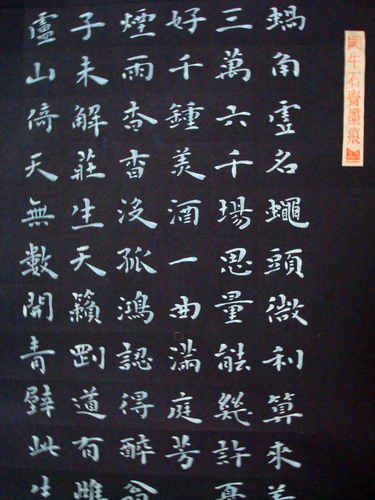 牛石齋墨痕
蝸角虛名蠅頭微利算來
三萬六千場思量能幾許
好千鍾美酒一曲滿庭芳
煙雨杳杳沒孤鴻認得醉翁
子未解莊生天籟剛道有雌
山倚天無數開青壁此生